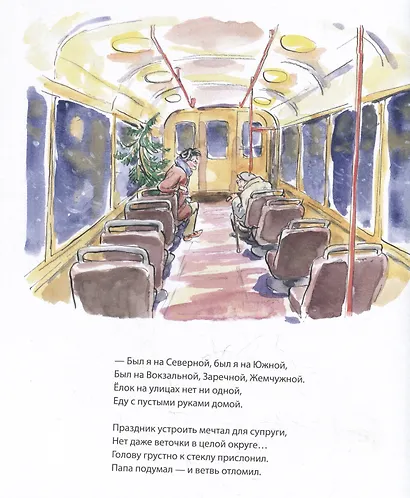 — Был я на Северной, был я на Южной,
Был на Вокзальной, Заречной, Жемчужной.
Ёлок на улицах нет ни одной,
Еду с пустыми руками домой.
Праздник устроить мечтал для супруги,
Нет даже веточки в целой округе...
Голову грустно к стеклу прислонил.
Папа подумал — и ветвь отломил.